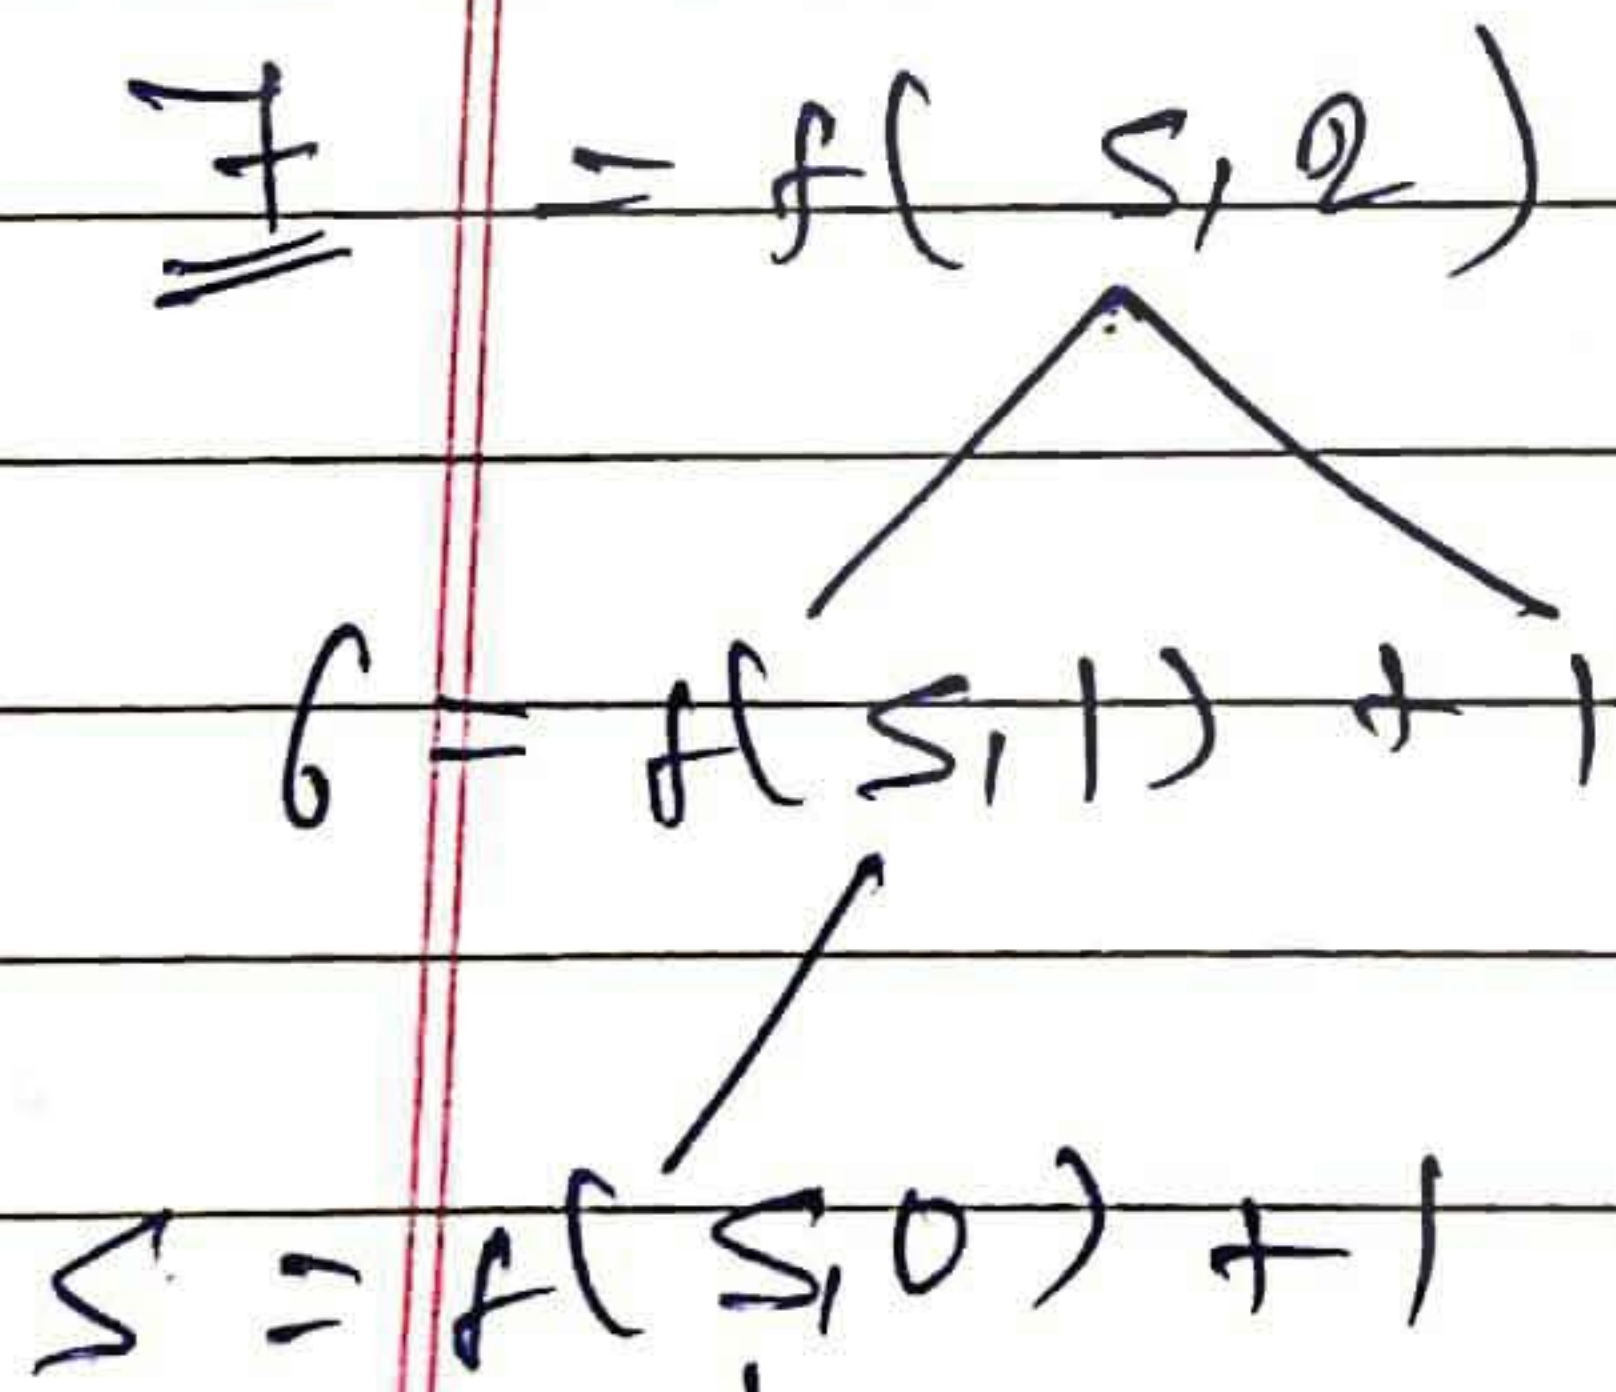 7 = f( 5, 2 )
6 = f( 5, 1 ) + 1
5 = f( 5, 0 ) + 1